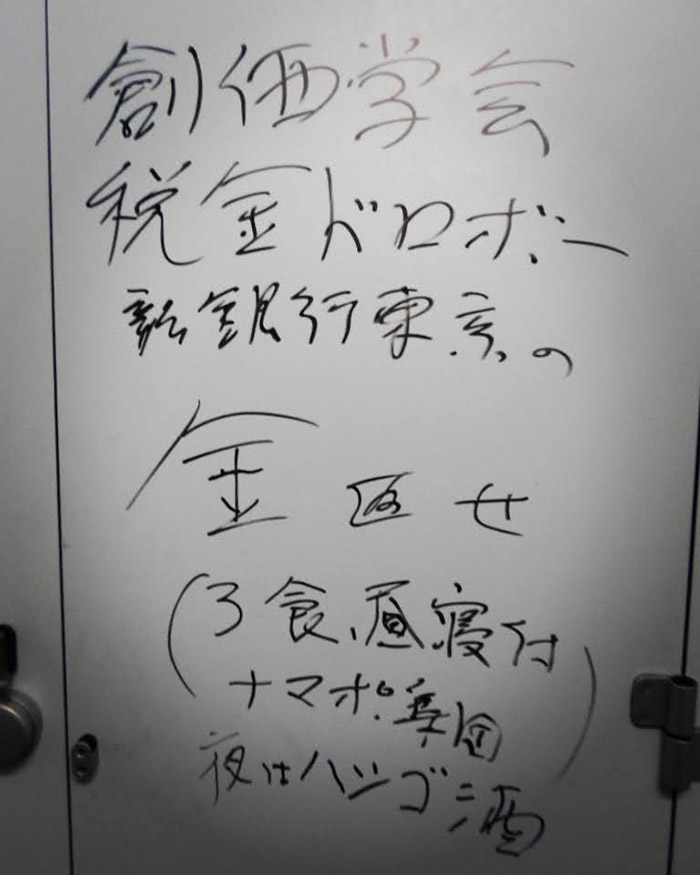 創価学会
税金ドロボー
新銀行東京の
金返せ
(3食、昼寝付
ナマポ集団
夜はハシゴ酒)